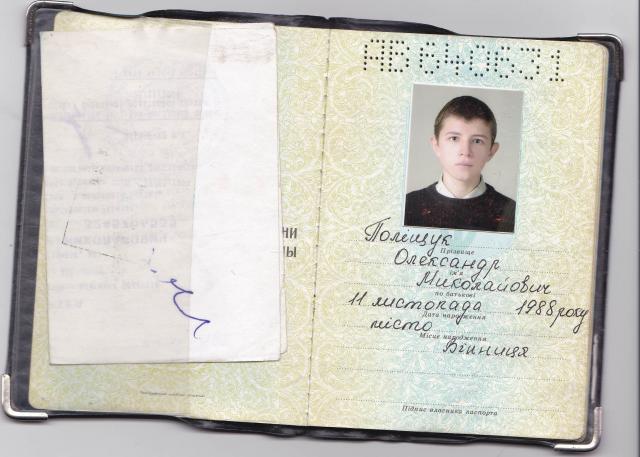 АВ 640631
НИ
НЫ
Поліщук
Прізвище
Олександр
ім'я
Миколайович
по батькові
11 листопада 1988 року
Дата народження
місто
Місце народження
Вінниця
Підпис власника паспорта